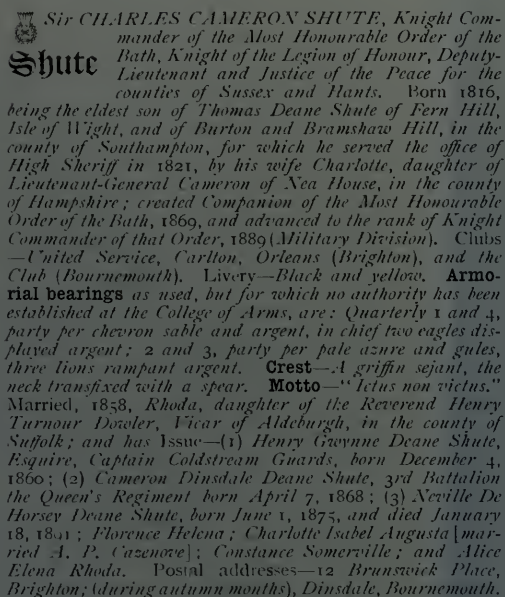 Sir CHARLES CAMERON SHUTE, Knight Com-
mander of the Most Honourable Order of the
Shute
Bath, Knight of the Legion of Honour, Deputy-
Lieutenant and Justice of the Peace for the
counties of Sussex and Hants. Born 1816,
being the eldest son of Thomas Deane Shute of Fern Hill,
Isle of Wight, and of Burton and Bramshaw Hill, in the
county of Southampton, for which he served the office of
High Sheriff in 1821, by his wife Charlotte, daughter of
Lieutenant-General Cameron of Nea House, in the county
of Hampshire; created Companion of the Most Honourable
Order of the Bath, 1869, and advanced to the rank of Knight
Commander of that Order, 1889 (Military Division). Clubs
—United Service, Carlton, Orleans (Brighton), and the
Club (Bournemouth). Livery—Black and yellow. Armo-
rial bearings as used, but for which no authority has been
established at the College of Arms, are: Quarterly 1 and 4,
party per chevron sable and argent, in chief two eagles dis-
played argent; 2 and 3, party per pale azure and gules,
three lions rampant argent. Crest—A griffin sejant, the
neck transfixed with a spear. Motto—"Ictus non victus."
Married, 1858, Rhoda, daughter of the Reverend Henry
Turnour Dowler, Vicar of Aldeburgh, in the county of
Suffolk; and has Issue—(1) Henry Gwynne Deane Shute,
Esquire, Captain Coldstream Guards, born December 4,
1860; (2) Cameron Dinsdale Deane Shute, 3rd Battalion
the Queen's Regiment born April 7, 1868; (3) Neville De
Horsey Deane Shute, born June 1, 1875, and died January
18, 1891; Florence Helena; Charlotte Isabel Augusta [mar-
ried A. P. Cazenove]; Constance Somerville; and Alice
Elena Rhoda. Postal addresses—12 Brunswick Place,
Brighton; (during autumn months), Dinsdale, Bournemouth.